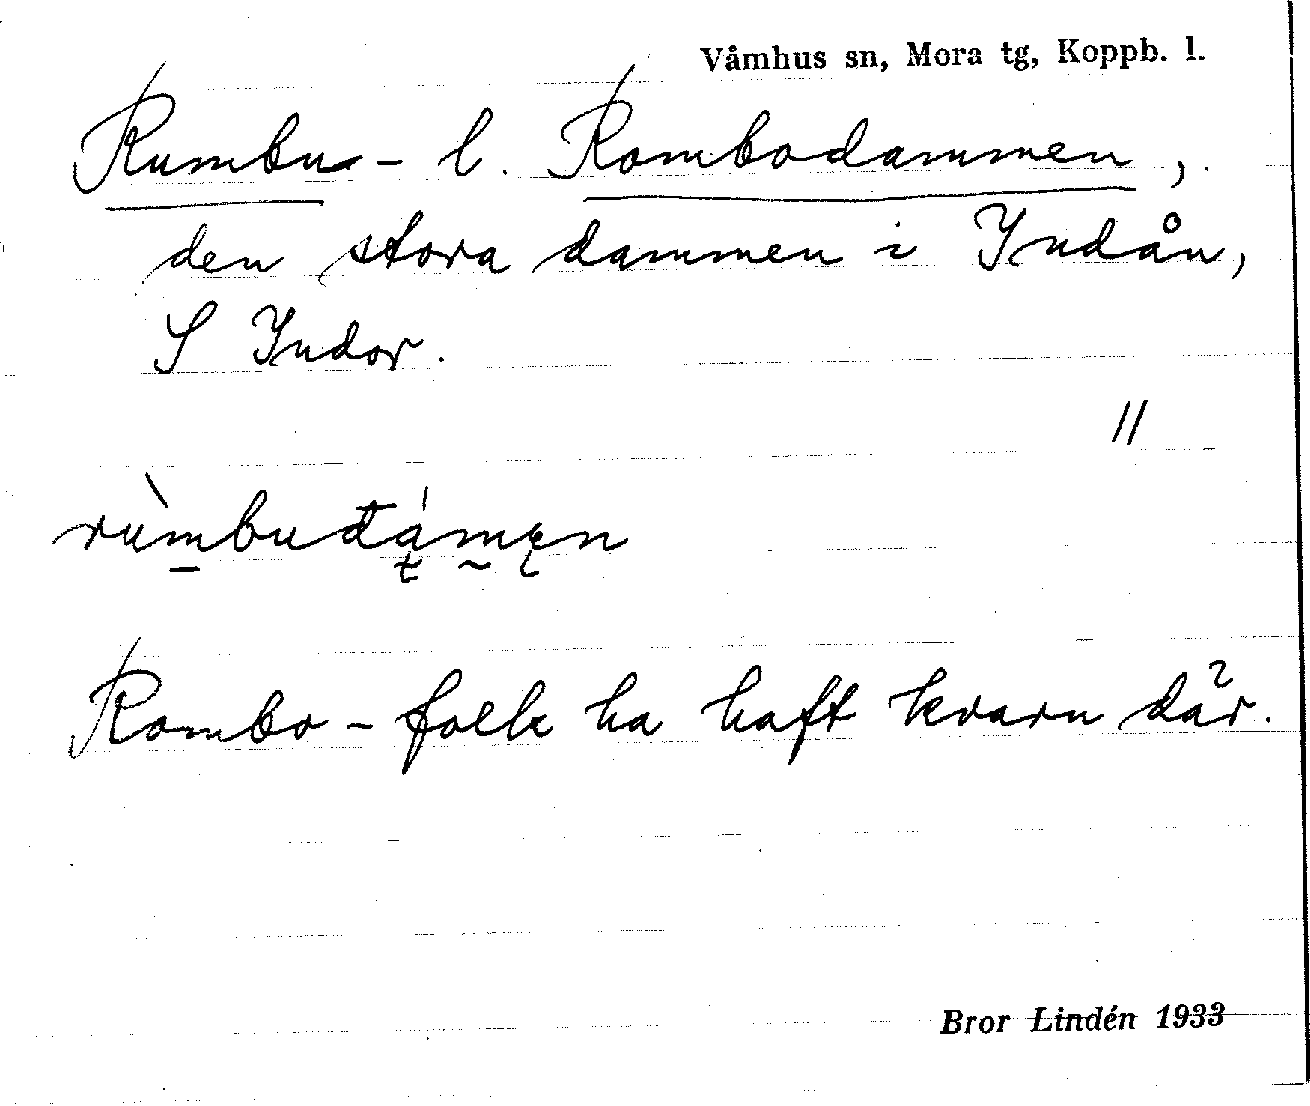 Våmhus sn, Mora tg, Koppb. l.
Rumbu- l. Rombodammen,
den stora dammen i Indån,
S Indor.
//
rùmbudámęn
Rombo-folk ha haft kvarn där.
Bror Lindén 1933